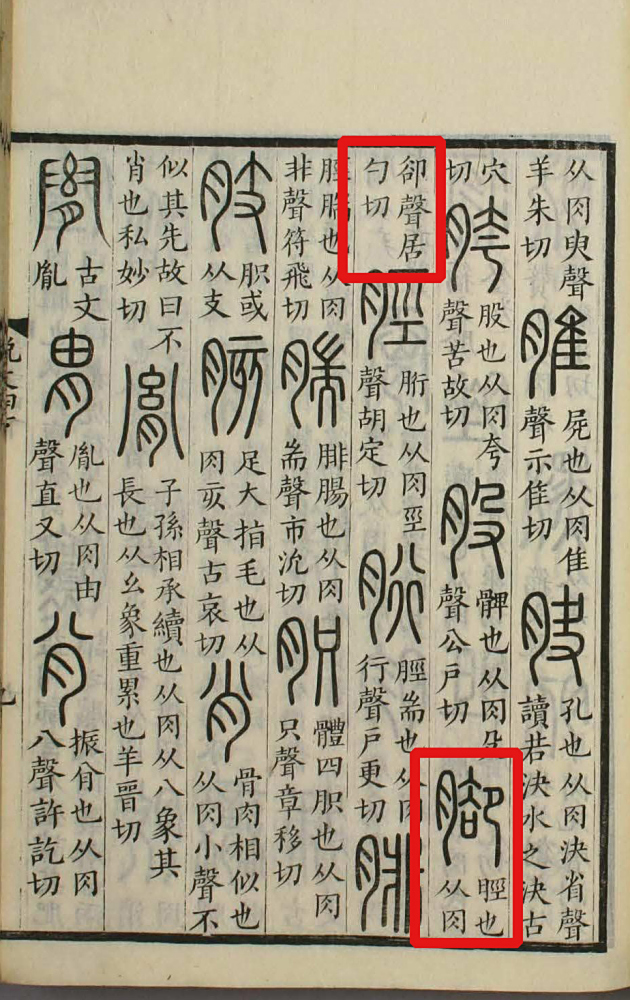 从肉臾聲
羊朱切
脽
屍也从肉隹
聲示隹切
𦙶
孔也从肉決省聲
讀若決水之決古
穴
切
胯
股也从肉夸
聲苦故切
股
髀也从肉殳
聲公戶切
腳
脛也
从肉
卻聲居
勺切
脛
胻也从肉巠
聲胡定切
胻
脛耑也从肉
行聲戶更切
腓
脛腨也从肉
非聲符飛切
腨
腓腸也从肉
耑聲市沇切
胑
體四胑也从肉
只聲章移切
肢
胑或
从支
胲
足大指毛也从
肉亥聲古哀切
肖
骨肉相似也
从肉小聲不
似其先故曰不
肖也私妙切
胤
子孫相承續也从肉从八象其
長也从幺象重累也羊晉切
古文
胤
胄
胤也从肉由
聲直又切
振也从肉
八聲許訖切